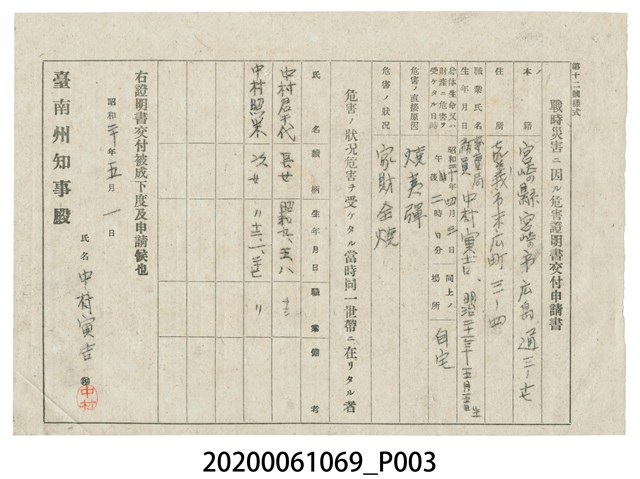 第十二號樣式
戰時災害ニ因ル危害證明書交付申請書
本籍 宮崎縣宮崎市広島通三ノ七
住所 嘉義市末広町三ノ四
職業氏名生年月日 專賣局 中村寅吉 明治
身体生命又ハ財產ニ危害ヲ受ケタル日時 昭和二十年四月三日 午後二時〇分 同上ノ場所 自宅
危害ノ直接原因 燒夷彈
危害ノ狀況 家財全燒
危害ノ狀況危害ヲ受ケタル當時同一世帶ニ在リタル者
氏名 續柄 生年月日 職業 備考
中村君千代 長女 昭和九、五、八
中村照栄 次女
右證明書交付被成下度及申請候也
昭和二十年五月一日
氏名 中村寅吉 中村
臺南州知事殿
20200061069_P003